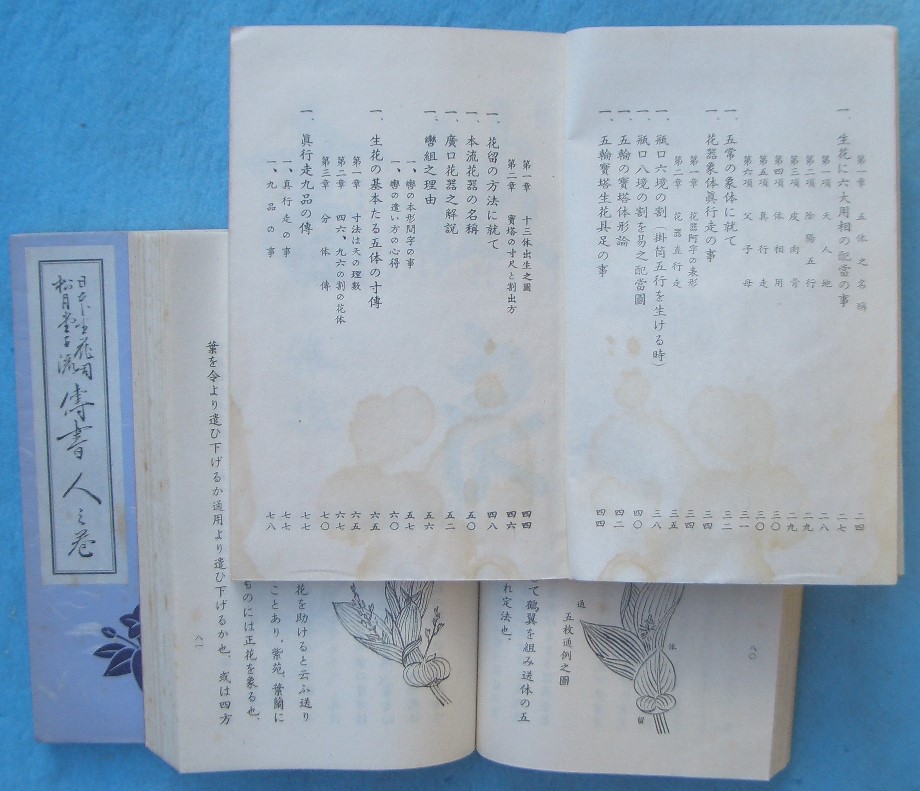 第一章 五体之名稱 二四
一、生花に六大用相の配當の事 二七
第一項 天人地 二八
第二項 陰陽五行 二九
第三項 皮肉骨 二九
第四項 体相用 三〇
第五項 真行走 三〇
第六項 父子母 三一
一、五常の象体に就て 三二
一、花器象体眞行走の事 三四
第一章 花器阿字の表形 三四
第二章 花器真行走 三五
一、瓶口六境の割(掛筒五行を生ける時) 三八
一、瓶口八境の割を易之配當圖 四〇
一、五輪の寶塔体形論 四二
一、五輪寶塔生花具足の事 四四
第一章 十三体出生之圖 四四
第二章 寶塔の寸尺と割出方 四六
一、花留の方法に就て 四八
一、本流花器の名稱 五〇
一、廣口花器之解説 五二
一、轡組之理由 五六
一、轡の本形間字の事 五七
一、轡の遣い方の心得 六〇
一、生花の基本たる五体の寸傳 六五
第一章 寸法は天の理数 六五
第二章 四六、九六の割の花体 六七
第三章 分体傳 七〇
一、眞行走九品の傳 七七
一、真行走の事 七七
一、九品の事 七八
日本生花司
松月堂古流
傳書 人之巻
八〇
体
留
通
五枚通例之圖
て鶴翼を組み送体の五
れ定法也、
花を助けると云ふ送り
ことあり、紫苑、葉蘭に
ものには正花を象る也、
八一
葉を令より遣ひ下げるか通用より遣ひ下げるか也、或は四方